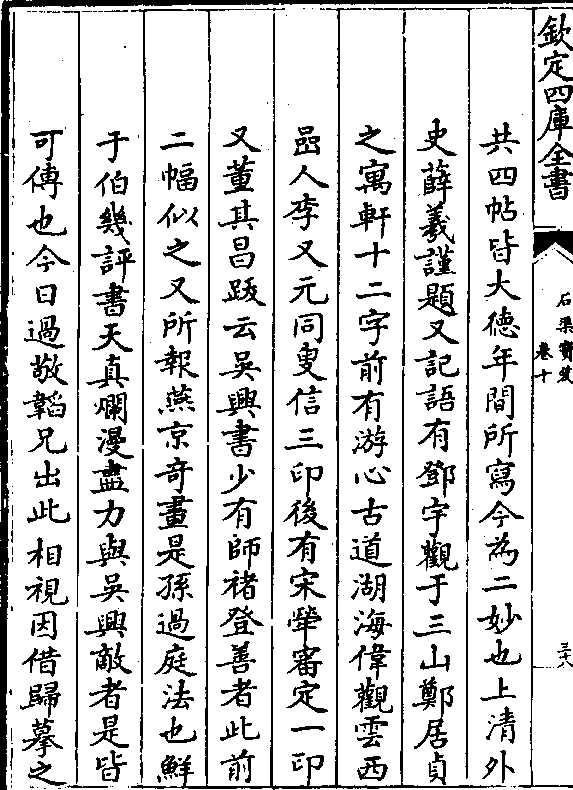 欽定四庫全書
石渠寶笈
卷十
三十八
共四帖皆大德年間所寫今為二妙也上清外
史薛羲謹題又記語有鄧宇觀于三山鄭居貞
之寓軒十二字前有游心古道湖海偉觀雲西
嵓人李又元同叟信三印後有宋犖審定一印
又董其昌跋云吳興書少有師褚登善者此前
二幅似之又所報燕京奇畫是孫過庭法也鮮
于伯幾評書天真爛漫盡力與吳興敵者是皆
可傳也今日過敬韜兄出此相視因借歸摹之